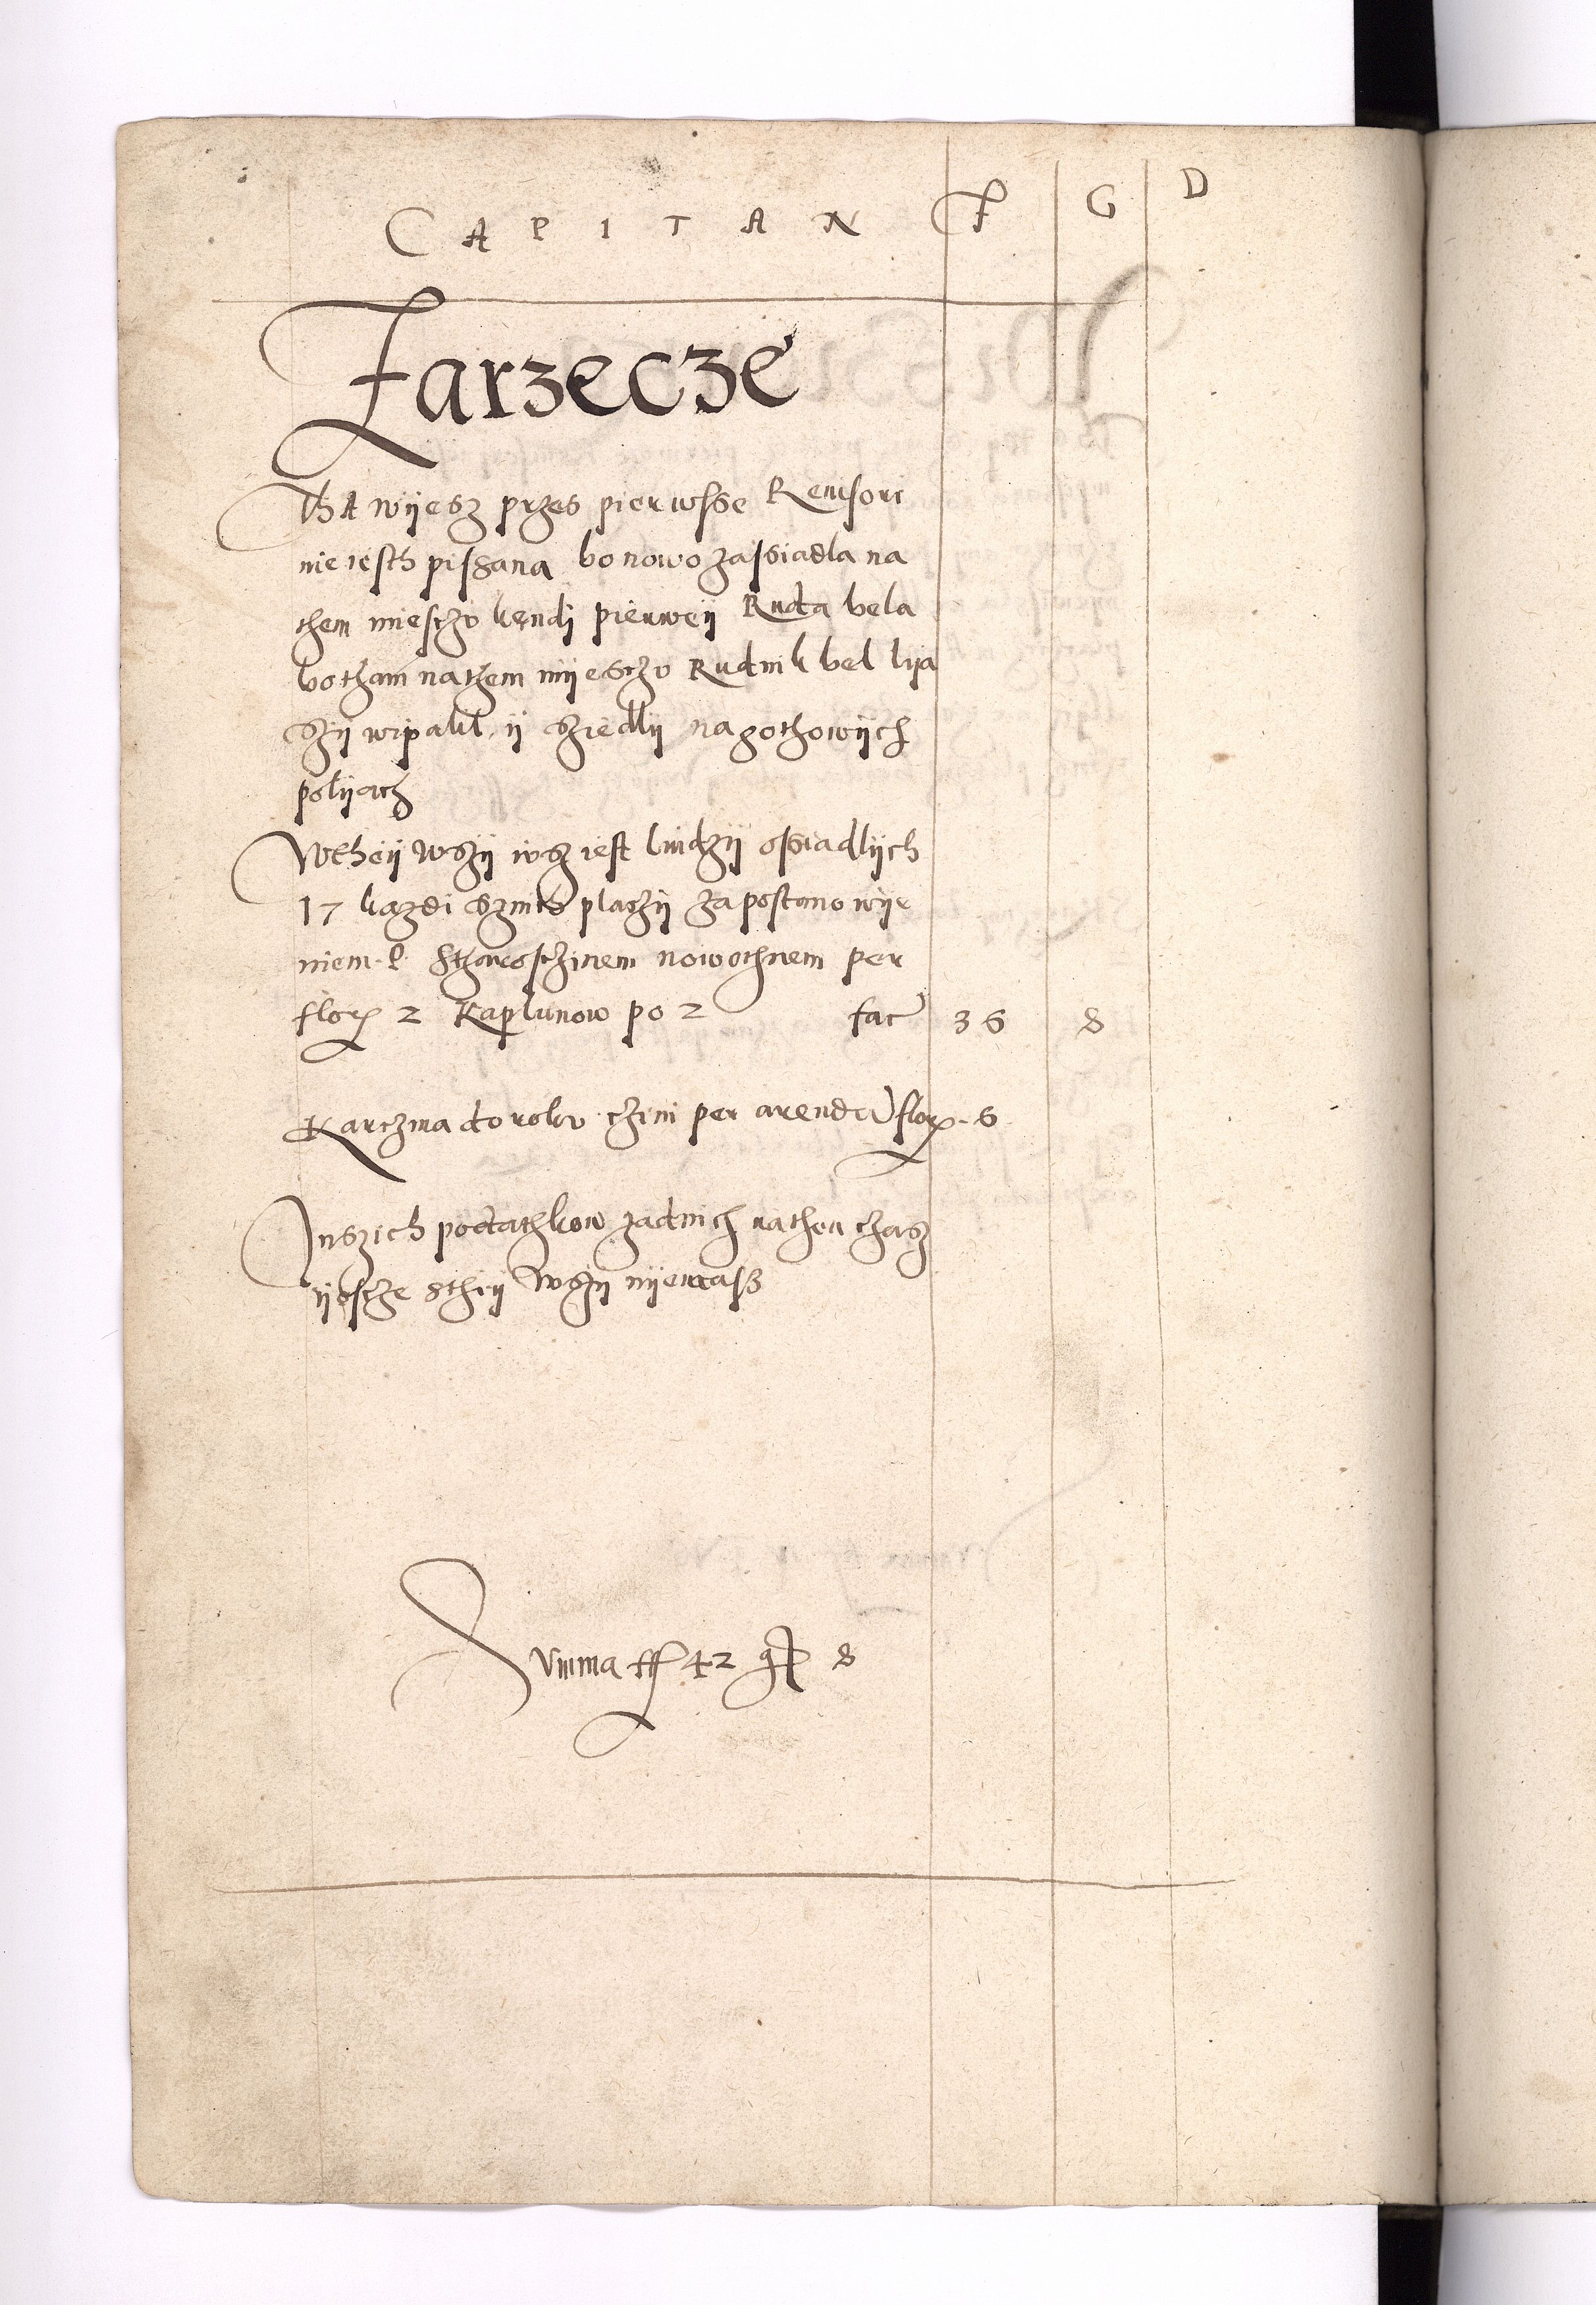 CAPITAN F G D
Zarzecze
Tha wyesz przes pierwsse Rewisori
nie iesth pissana bo nowo zassiadla na
them miesczv kendj pierwey Ruda bela
bo tham na them myesczv Rudnik bel lya
szy wipalil y sziedly na gothowych
polyach
W they wszy iusz iest ludzy ossiadlych
17 kazdi sznich placzy za postanowye
niem p Stharosczinem nowothnem per
flor 2 Kaplunow po 2 fac 36 8
Karczma do rokv czini per arenda flor 6
Inszich podathkow zadnich na then czasz
yescze sthey wszy nyemasz
Summa ff 42 gr 8